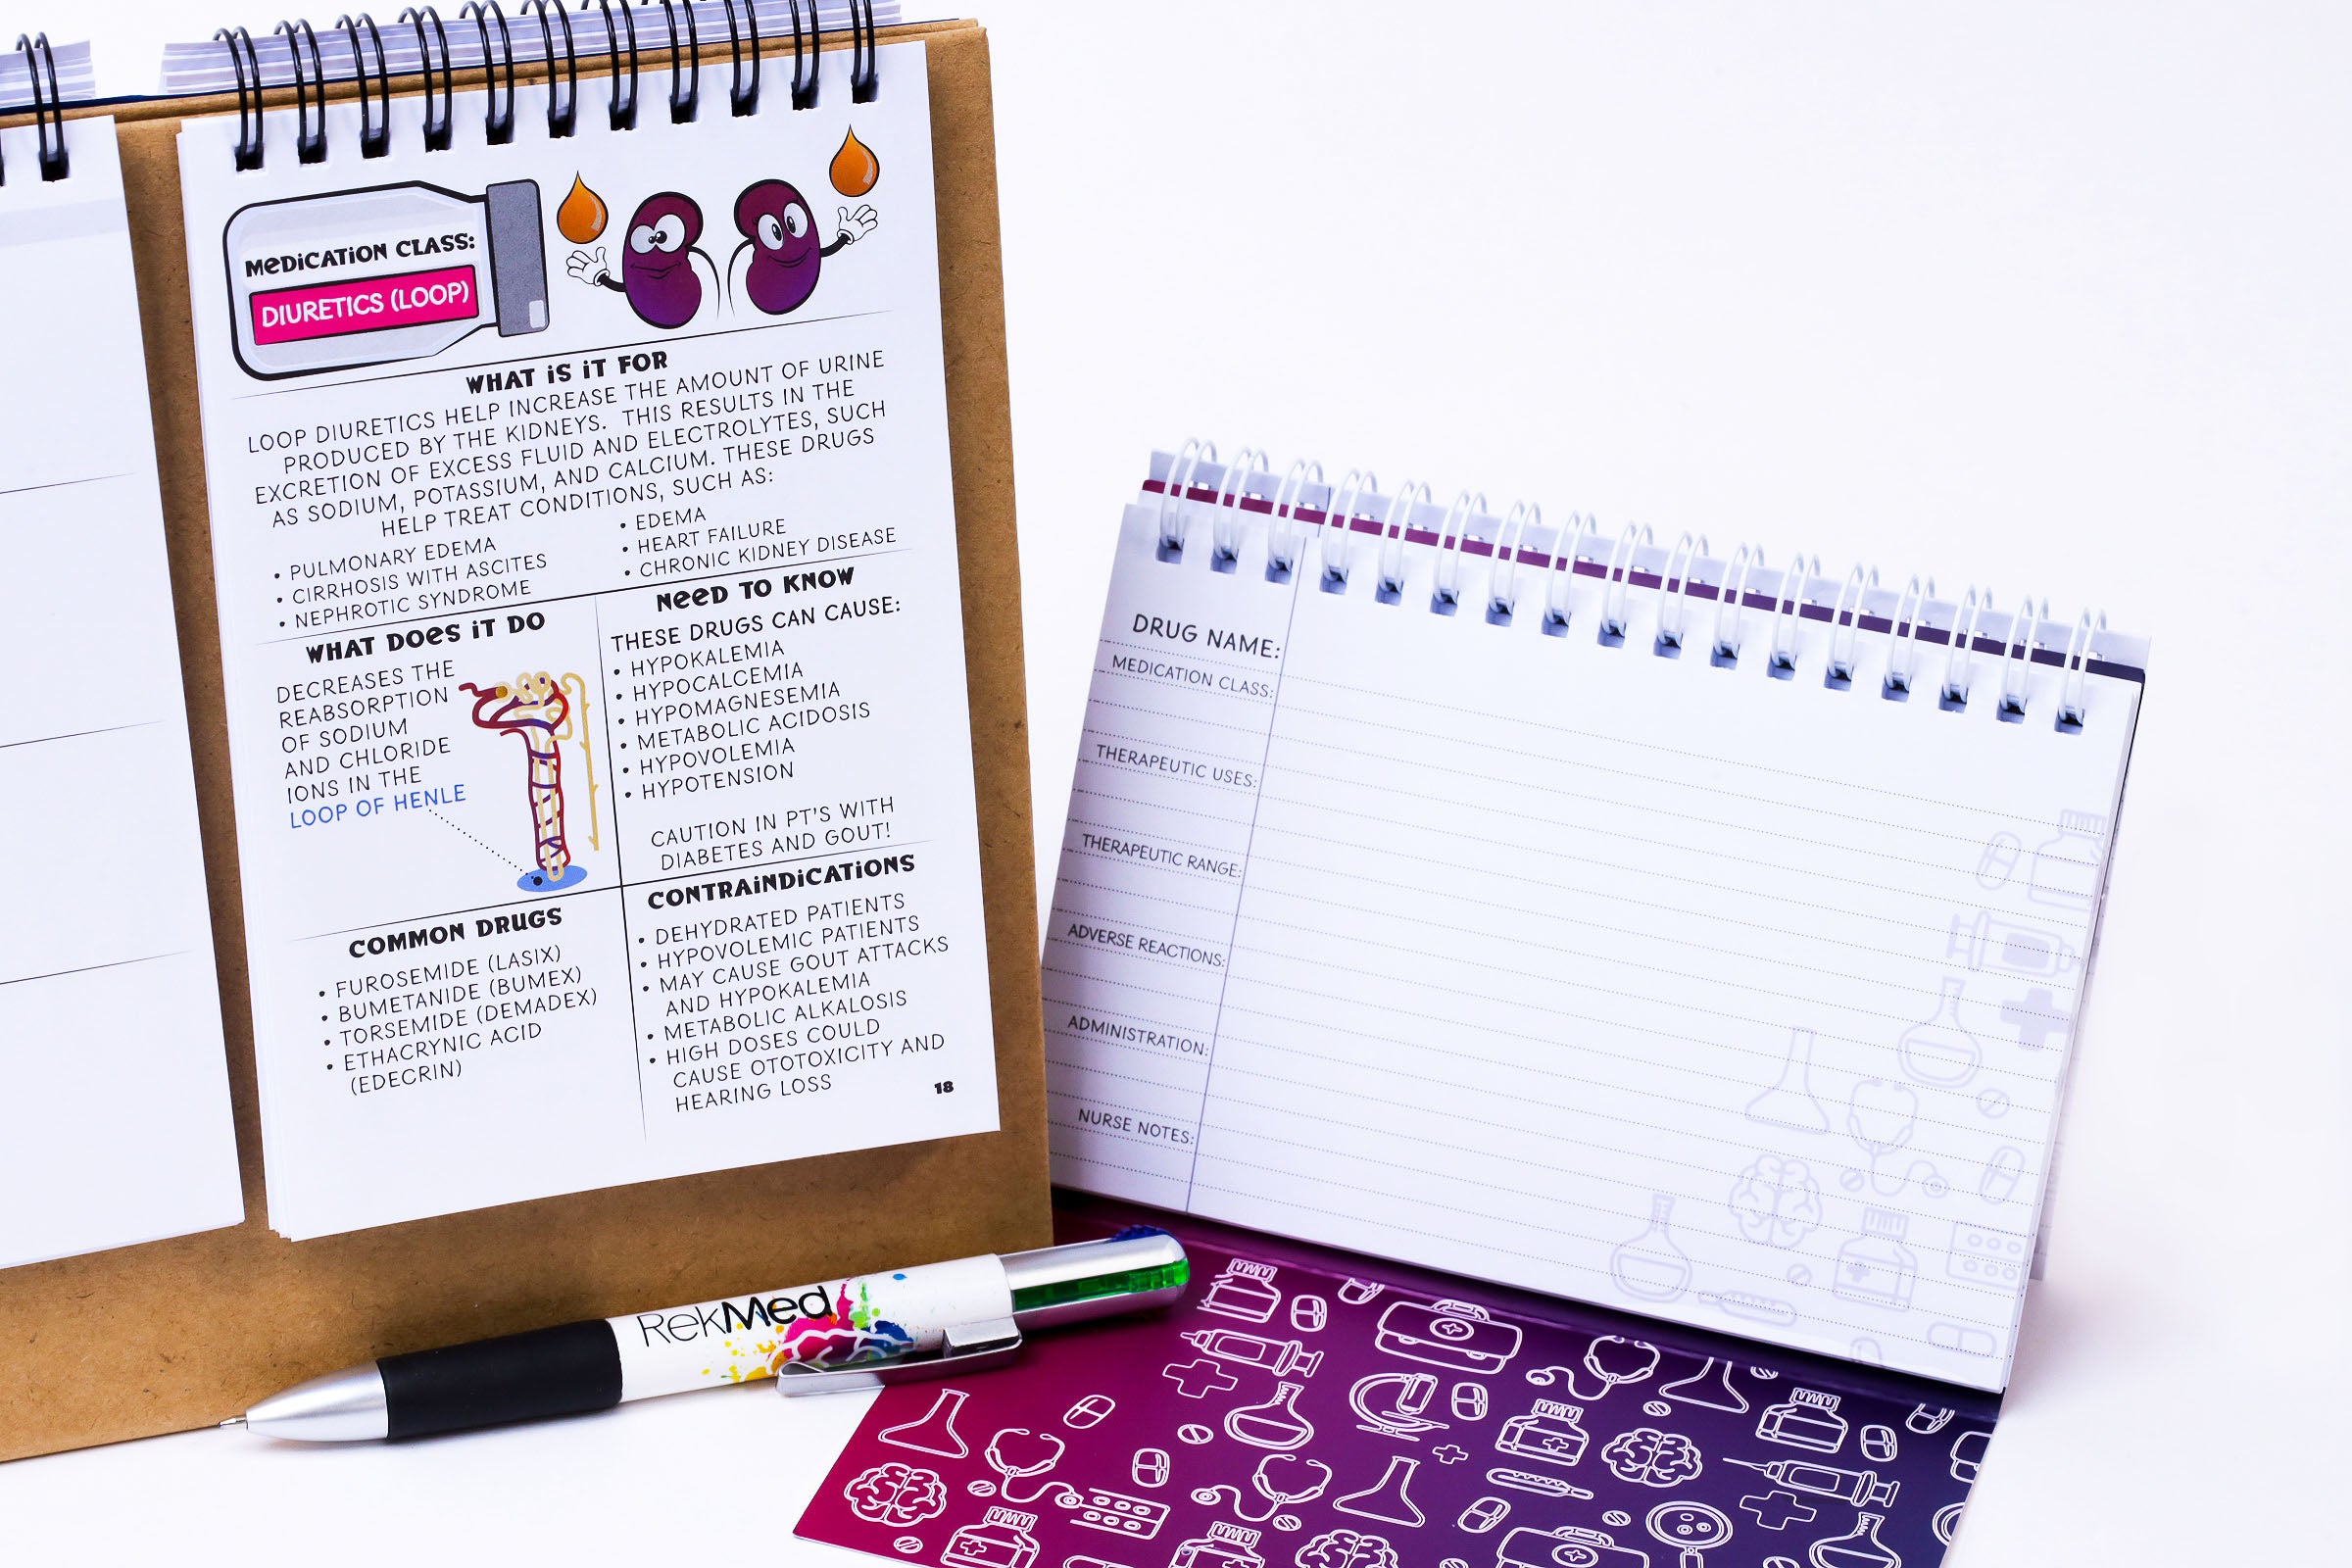 MeDiCATiON CLASS:
DIURETICS (LOOP)
WHAT iS iT FOR
LOOP DIURETICS HELP INCREASE THE AMOUNT OF URINE
PRODUCED BY THE KIDNEYS. THIS RESULTS IN THE
EXCRETION OF EXCESS FLUID AND ELECTROLYTES, SUCH
AS SODIUM, POTASSIUM, AND CALCIUM. THESE DRUGS
HELP TREAT CONDITIONS, SUCH AS:
• PULMONARY EDEMA
• CIRRHOSIS WITH ASCITES
• NEPHROTIC SYNDROME
• EDEMA
• HEART FAILURE
• CHRONIC KIDNEY DISEASE
WHAT DOeS iT DO
DECREASES THE
REABSORPTION
OF SODIUM
AND CHLORIDE
IONS IN THE
LOOP OF HENLE
NeeD TO KNOW
THESE DRUGS CAN CAUSE:
• HYPOKALEMIA
• HYPOCALCEMIA
• HYPOMAGNESEMIA
• METABOLIC ACIDOSIS
• HYPOVOLEMIA
• HYPOTENSION
CAUTION IN PT'S WITH
DIABETES AND GOUT!
COMMON DRUGS
• FUROSEMIDE (LASIX)
• BUMETANIDE (BUMEX)
• TORSEMIDE (DEMADEX)
• ETHACRYNIC ACID
(EDECRIN)
CONTRAiNDiCATiONS
• DEHYDRATED PATIENTS
• HYPOVOLEMIC PATIENTS
• MAY CAUSE GOUT ATTACKS
AND HYPOKALEMIA
• METABOLIC ALKALOSIS
• HIGH DOSES COULD
CAUSE OTOTOXICITY AND
HEARING LOSS
18
RekMed
DRUG NAME:
MEDICATION CLASS:
THERAPEUTIC USES:
THERAPEUTIC RANGE:
ADVERSE REACTIONS:
ADMINISTRATION:
NURSE NOTES: